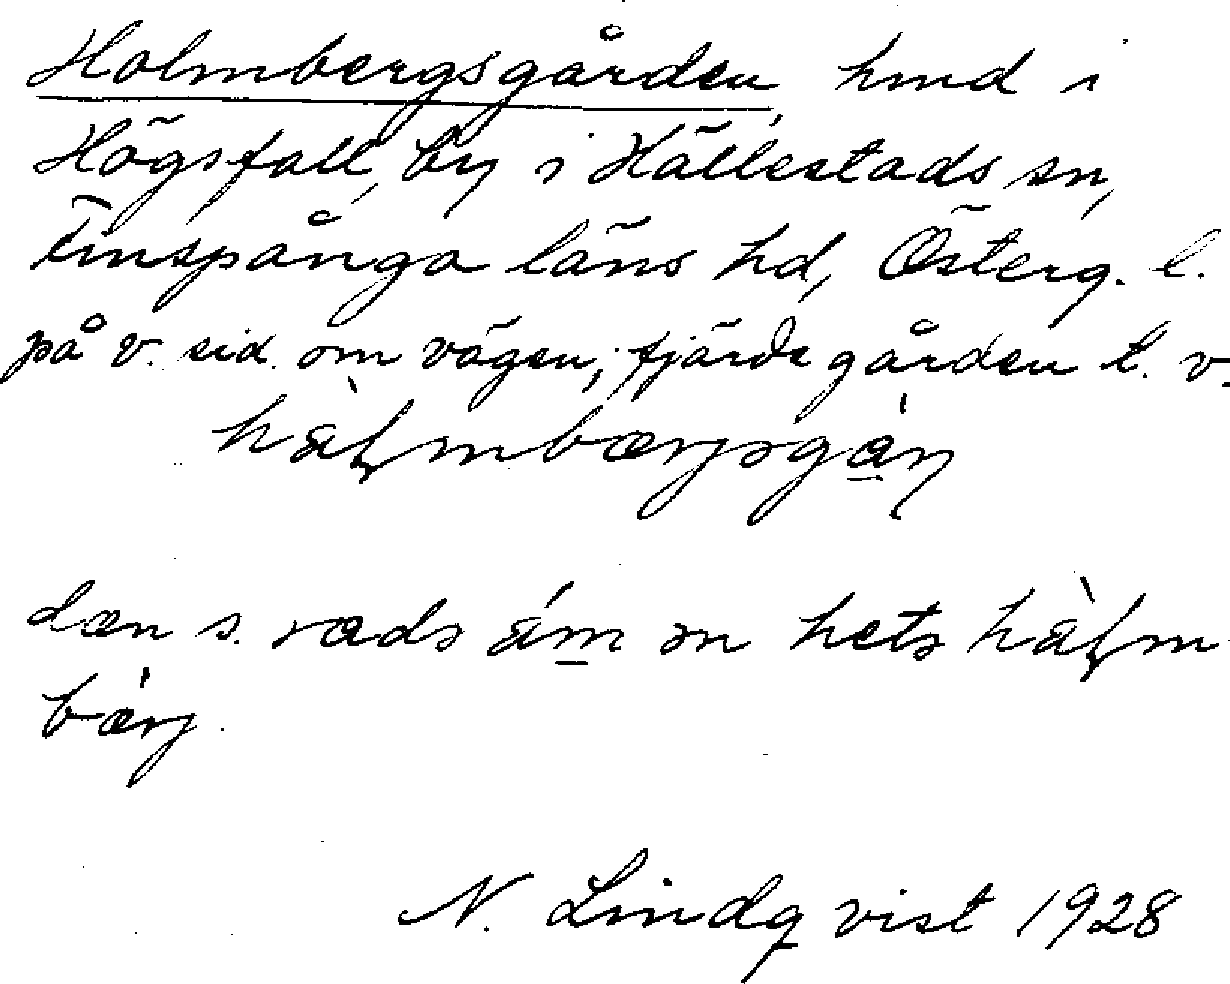 Holmbergsgården, hmd i
Högsfall, by i Hällestads sn,
Finspånga läns hd, Österg. l.
på v. sid. om vägen, fjärde gården t. v.
hàłmbærjsgán
dæn s. rads ám ən hetə hàłm
bærj.
N. Lindqvist 1928